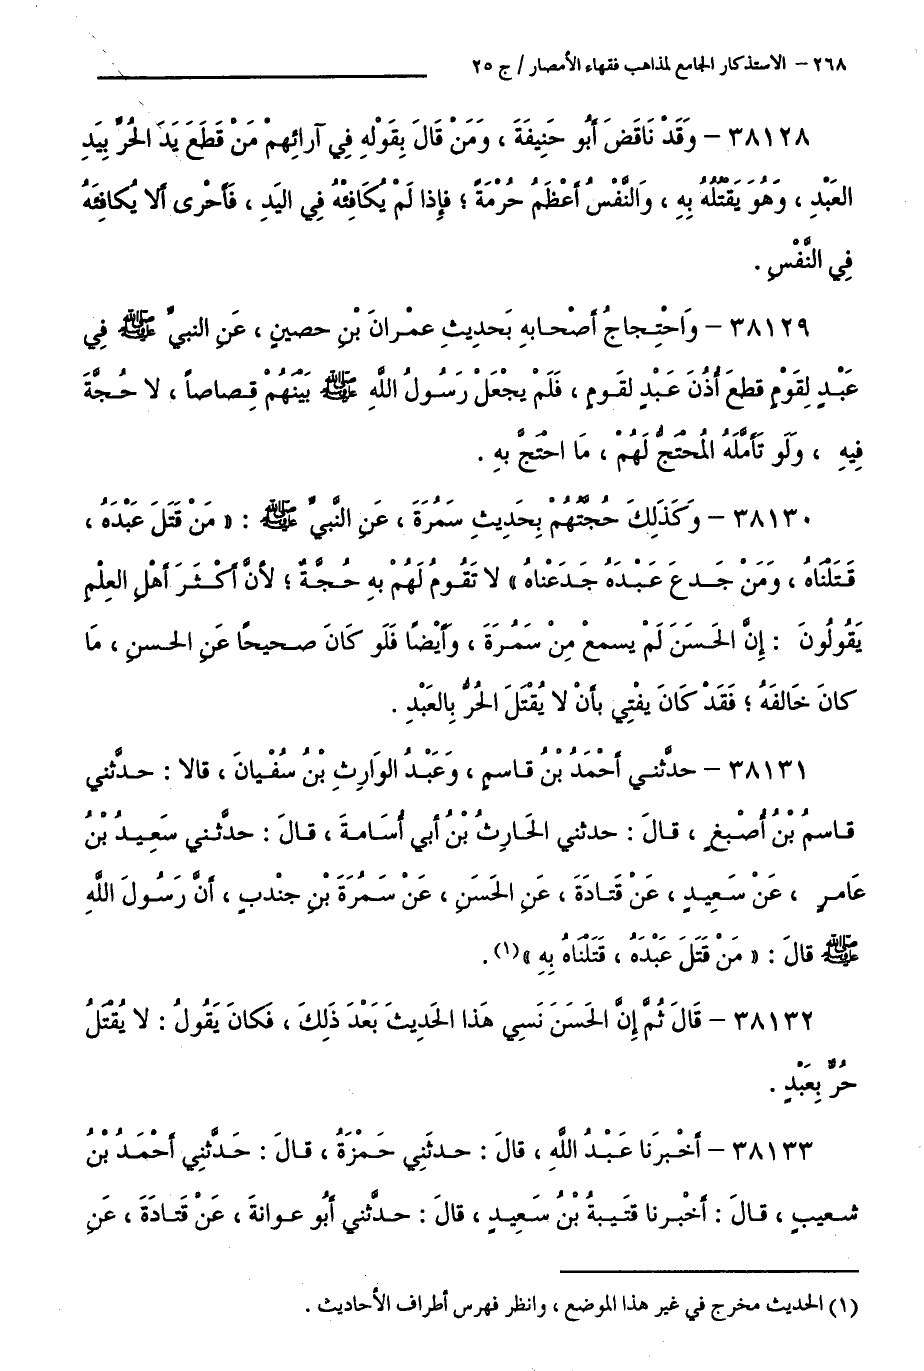 ٢٦٨ – الاستذكار الجامع لمذاهب فقهاء الأمصار / ج ٢٥
٣٨١٢٨ – وَقَدْ نَاقَضَ أَبُو حَنِيفَةَ ، وَمَنْ قَالَ بِقَوْلِهِ فِي آرائِهِمْ مَنْ قَطَعَ يَدَ الحُرِّ بِيَدِ
العَبْدِ ، وَهُوَ يَقْتُلُهُ بِهِ ، وَالنَّفْسُ أَعْظَمُ حُرْمَةً ؛ فإِذا لَمْ يُكَافِئْهُ فِي اليَدِ ، فَأَحْرى ألا يُكافِئَهُ
فِي النَّفْسِ .
٣٨١٢٩ – وَاحْتِـجاجُ أصْحابِهِ بَحَديثِ عِمْرانَ بْنِ حصينٍ ، عَنِ النبيِّ ﷺ فِي
عَبْـدٍ لِقَوْمٍ قطعَ أُذُنَ عَبْدٍ لقَومٍ ، فَلَمْ يجْعَلْ رَسُولُ اللَّهِ ﷺ بَيْنَهُمْ قِـصاصاً ، لا حُـجَّةَ
فِيهِ ، وَلَو تَأَمَّلَهُ المُحْتَجُّ لَهُمْ ، مَا احْتَجَّ بهِ .
٣٨١٣٠ – وكَذَلِكَ حُجَّتُهُمْ بِحَديثِ سَمُرَةَ ، عَنِ النَّبيِّ ﷺ : « مَنْ قَتَلَ عَبْدَهُ ،
قَـتَلْنَاهُ ، وَمَنْ جَـدعَ عَـبْـدَهُ جَدَعْناهُ » لا تَقُومُ لَهُمْ بِهِ حُـجَّةٌ ؛ لأنَّ أَكْـثَـرَ أَهْلِ العِلْمِ
يَقُولُونَ : إِنَّ الحَـسَنَ لَمْ يسمعْ مِنْ سَمُرَةَ ، وَأَيْضًا فَلَو كَانَ صـحيحًا عَنِ الحـسنِ ، مَا
كانَ خَالفَهُ ؛ فَقَدْ كَانَ يفْتِي بأنْ لا يُقْتَلَ الحُرُّ بِالعَبْدِ .
٣٨١٣١ – حدَّثنـي أَحْمَدُ بْنُ قاسمٍ ، وَعَبْدُ الوَارِثِ بْنُ سُفْيانَ ، قالا : حدَّثني
قـاسمُ بْنُ أَصْبغٍ ، قـالَ : حدثني الحَـارِثُ بْنُ أَبي أُسَامـةَ ، قـالَ : حدَّثـني سَعِيـدُ بْنُ
عَامـرٍ ، عَنْ سَعِيـدٍ ، عَنْ قَتـادَةَ ، عَنِ الحَسَنِ ، عَنْ سَـمُرَةَ بْنِ جندبٍ ، أَنَّ رَسُولَ اللَّهِ
ﷺ قالَ : « مَنْ قَتَلَ عبْدَهُ ، قَتَلْنَاهُ بِهِ »(١).
٣٨١٣٢ – قَالَ ثُمَّ إِنَّ الحَسَنَ نَسِي هَذا الحَديثَ بَعْدَ ذَلِكَ ، فَكانَ يَقُولُ : لا يُقْتَلُ
حُرٌّ بِعَبْدٍ .
٣٨١٣٣ – أَخْـبرَنا عَـبْـدُ اللَّهِ ، قالَ : حـدثَني حَـمْزَةُ ، قـالَ : حَـدَّثَنِي أَحْمَـدُ بْنُ
شـعيبٍ ، قـالَ : أَخْبـرنا قتيبةُ بْنُ سَعيدٍ ، قالَ : حدَّثني أَبُو عـوانةَ ، عَنْ قَتادَةَ ، عَنِ
(١) الحديث مخرج في غير هذا الموضع ، وانظر فهرس أطراف الأحاديث .